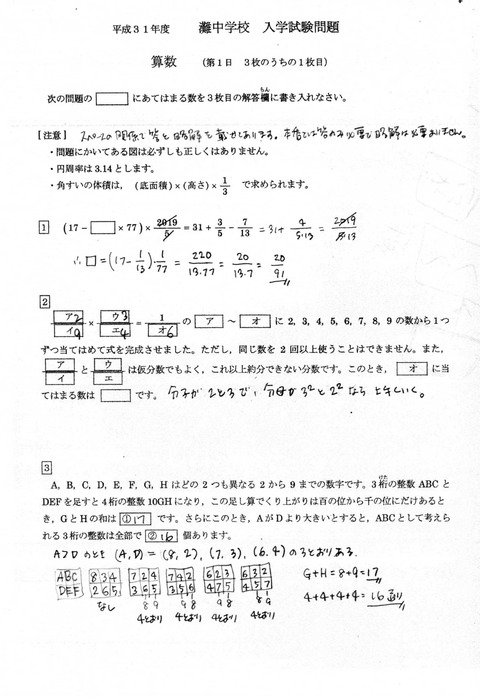 平成31年度 灘中学校 入学試験問題
算数 (第1日 3枚のうちの1枚目)
次の問題の□にあてはまる数を3枚目の解答欄に書き入れなさい。
らん
[注意] スペースの関係で答と略解を載せてあります。本番では答のみ必要で略解は必要ありません。
・問題にかいてある図は必ずしも正しくはありません。
・円周率は3.14とします。
・角すいの体積は, (底面積)×(高さ)×1/3 で求められます。
1 (17-□×77)×2019/5=31+3/5-7/13 =31+4/5·13 =2019/5·13
∴□=(17-1/13)·1/77=220/13·77=20/13·7=20/91
2
ア2/イ9×ウ3/エ4=1/オ6 の ア ~ オ に 2, 3, 4, 5, 6, 7, 8, 9 の数から1つ
ずつ当てはめて式を完成させました。ただし, 同じ数を2回以上使うことはできません。また,
ア/イ と ウ/エ は仮分数でもよく, これ以上約分できない分数です。このとき, オ に当
てはまる数は□です。 分子が2と3で、分母が3²と2²なら上手くいく。
3
けた
A, B, C, D, E, F, G, H はどの2つも異なる2から9までの数字です。3桁の整数 ABC と
DEF を足すと4桁の整数 10GH になり, この足し算でくり上がりは百の位から千の位にだけあると
き, GとHの和は ①17 です。さらにこのとき, AがDより大きいとすると, ABCとして考えら
れる3桁の整数は全部で ②16 個あります。
A>Dのとき (A,D)=(8,2), (7,3), (6,4)の3とおりある.
ABC 834 724 742 623 632
DEF 265 365 356 475 457
なし 89 98 98 89
4とおり 4とおり 4とおり 4とおり
G+H=8+9=17
4+4+4+4=16通り